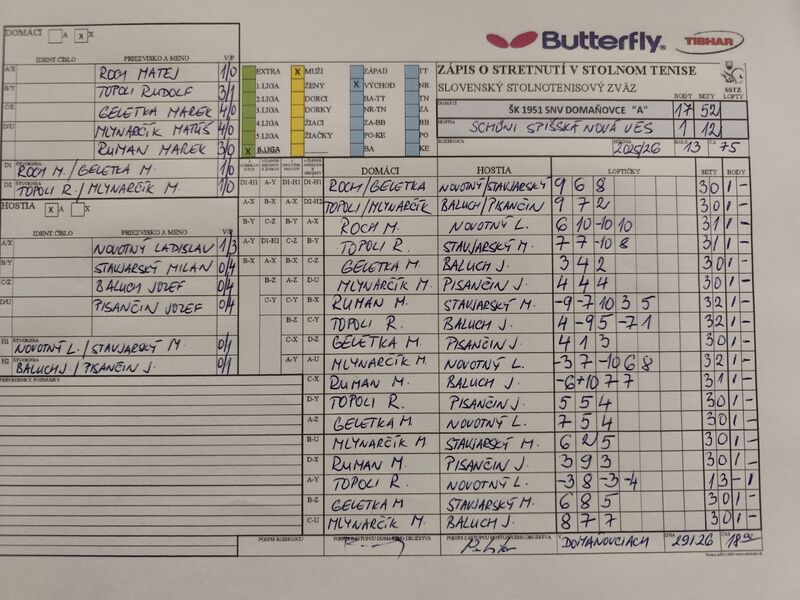 Butterfly
TIBHAR
DOMÁCI A X X
IDENT.ČÍSLO PRIEZVISKO A MENO V/P
A/X ROCH MATEJ 1/0
B/Y TOPOLI RUDOLF 3/1
C/Z GELETKA MAREK 4/0
D/U MLYNARČÍK MATÚŠ 4/0
RUMAN MAREK 3/0
D1 ŠTVORHRA ROCH M./GELETKA M. 1/0
D2 ŠTVORHRA TOPOLI R./MLYNARČÍK M. 1/0
HOSTIA A X X
IDENT.ČÍSLO PRIEZVISKO A MENO V/P
A/X NOVOTNÝ LADISLAV 1/3
B/Y STAVJARSKÝ MILAN 0/4
C/Z BALUCH JOZEF 0/4
D/U PISANČIN JOZEF 0/4
H1 ŠTVORHRA NOVOTNÝ L./STAVJARSKÝ M. 0/1
H2 ŠTVORHRA BALUCH J./PISANČIN J. 0/1
PRIPOMIENKY, POZNÁMKY
EXTRA X MUŽI ZÁPAD TT
1.LIGA ŽENY X VÝCHOD NR
2.LIGA DORCI BA-TT TN
3.LIGA DORKY NR-TN ZA
4.LIGA ŽIACI ZA-BB BB
5.LIGA ŽIAČKY PO-KE PO
X 6.LIGA BA KE
ZÁPIS O STRETNUTÍ V STOLNOM TENISE
SLOVENSKÝ STOLNOTENISOVÝ ZVÄZ
SSTZ
BODY SETY LOPTY
DOMÁCI ŠK 1951 SNV DOMAŇOVCE "A" 17 52
HOSTIA SCHÖNI SPIŠSKÁ NOVÁ VES 1 12
ROZHODCA SEZÓNA 2025/26 KOLO 13 Č.Z. 75
DOMÁCI HOSTIA LOPTIČKY SETY BODY
D1-H1 A-Y D1-H1 D1-H1 ROCH/GELETKA NOVOTNÝ/STAVJARSKÝ 9 6 8 3 0 1 -
A-X B-X A-X D2-H2 TOPOLI/MLYNARČÍK BALUCH/PISANČIN 9 7 2 3 0 1 -
B-Y C-Z B-Y A-X ROCH M. NOVOTNÝ L. 6 10 -10 10 3 1 1 -
A-Y D1-H1 C-Z B-Y TOPOLI R. STAVJARSKÝ M. 7 7 -10 8 3 1 1 -
B-X A-X B-X C-Z GELETKA M. BALUCH J. 3 4 2 3 0 1 -
B-Z A-Z D-U MLYNARČÍK M. PISANČIN J. 4 4 4 3 0 1 -
C-Y C-Y B-X RUMAN M. STAVJARSKÝ M. -9 -7 10 3 5 3 2 1 -
B-Z C-Y TOPOLI R. BALUCH J. 4 -9 5 -7 1 3 2 1 -
D-Z GELETKA M. PISANČIN J. 4 1 3 3 0 1 -
A-Y A-U MLYNARČÍK M. NOVOTNÝ L. -3 7 -10 6 8 3 2 1 -
C-X RUMAN M. BALUCH J. 10 7 7 3 1 1 -
D-Y TOPOLI R. PISANČIN J. 5 5 4 3 0 1 -
A-Z GELETKA M. NOVOTNÝ L. 7 5 4 3 0 1 -
B-U MLYNARČÍK M. STAVJARSKÝ M. 6 2 5 3 0 1 -
D-X RUMAN M. PISANČIN J. 3 9 3 3 0 1 -
A-Y TOPOLI R. NOVOTNÝ L. -3 8 -3 -4 1 3 - 1
B-Z GELETKA M STAVJARSKÝ M. 6 8 5 3 0 1 -
C-U MLYNARČÍK M. BALUCH J. 8 7 7 3 0 1 -
PODPIS ROZHODCU PODPIS ZÁSTUPCU DOMÁCEHO DRUŽSTVA PODPIS ZÁSTUPCU HOSŤUJÚCEHO DRUŽSTVA V DOMAŇOVCIACH DŇA ČAS